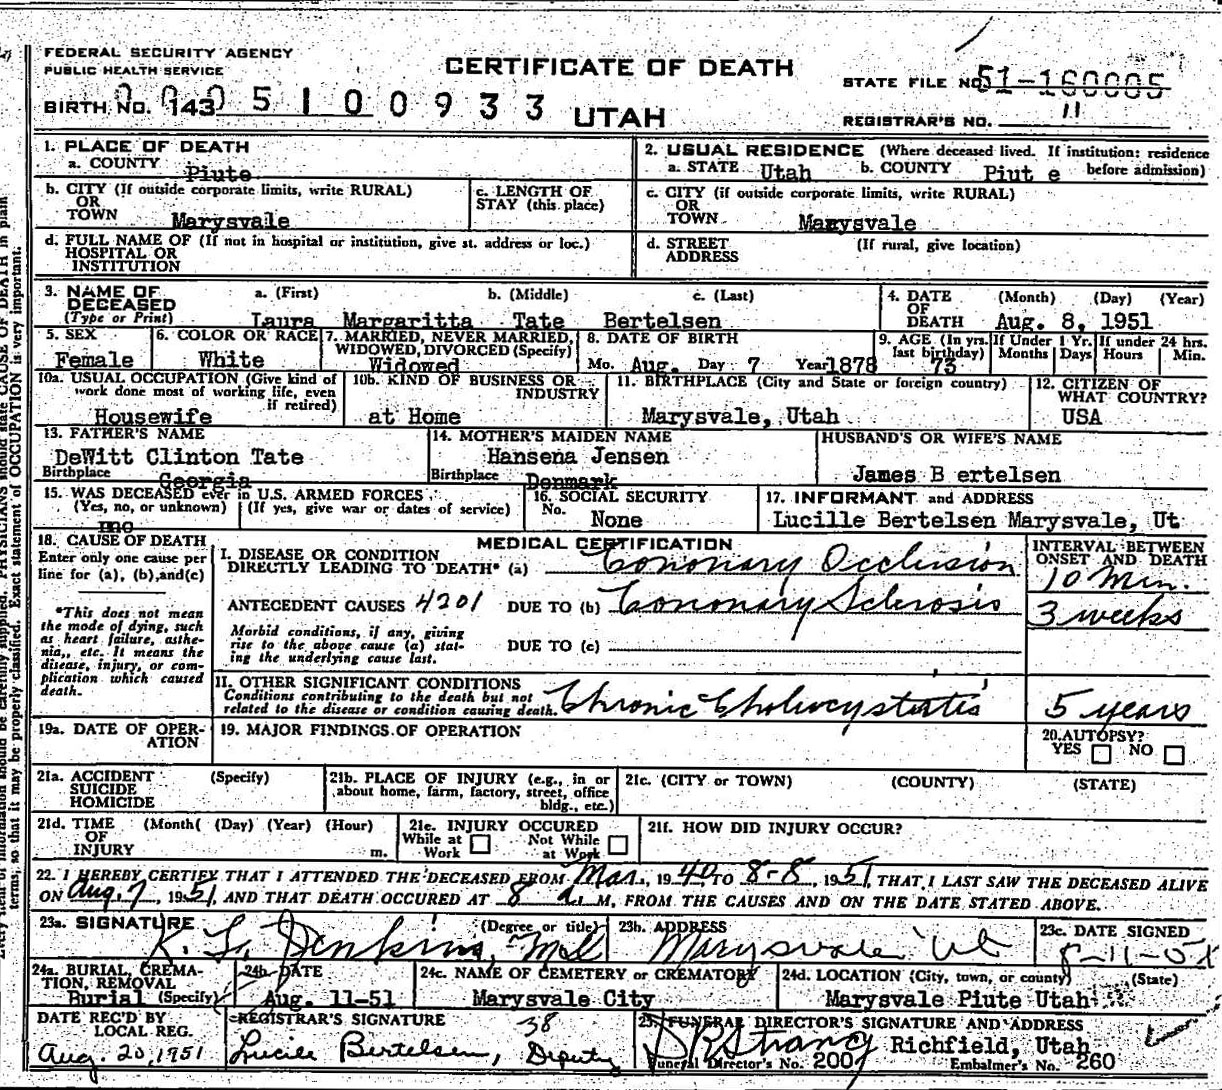 FEDERAL SECURITY AGENCY
PUBLIC HEALTH SERVICE
CERTIFICATE OF DEATH
STATE FILE NO. 51-160005
BIRTH NO. 143 0 0 0 5 1 0 0 9 3 3
UTAH
REGISTRAR'S NO. 11
1. PLACE OF DEATH
a. COUNTY Piute
2. USUAL RESIDENCE (Where deceased lived. If institution: residence before admission)
a. STATE Utah b. COUNTY Piut e
b. CITY (If outside corporate limits, write RURAL)
OR
TOWN Marysvale
c. LENGTH OF
STAY (this place)
c. CITY (if outside corporate limits, write RURAL)
OR
TOWN Marysvale
d. FULL NAME OF (If not in hospital or institution, give st. address or loc.)
HOSPITAL OR
INSTITUTION
d. STREET
ADDRESS
(If rural, give location)
3. NAME OF
DECEASED
(Type or Print)
a. (First) b. (Middle) c. (Last)
Laura Margaritta Tate Bertelsen
4. DATE
OF
DEATH
(Month) (Day) (Year)
Aug. 8, 1951
5. SEX
Female
6. COLOR OR RACE
White
7. MARRIED, NEVER MARRIED,
WIDOWED, DIVORCED (Specify)
Widowed
8. DATE OF BIRTH
Mo. Aug. Day 7 Year 1878
9. AGE (In yrs.
last birthday)
73
If Under 1 Yr.
Months Days
If under 24 hrs.
Hours Min.
10a. USUAL OCCUPATION (Give kind of
work done most of working life, even
if retired)
Housewife
10b. KIND OF BUSINESS OR
INDUSTRY
at Home
11. BIRTHPLACE (City and State or foreign country)
Marysvale, Utah
12. CITIZEN OF
WHAT COUNTRY?
USA
13. FATHER'S NAME
DeWitt Clinton Tate
Birthplace Georgia
14. MOTHER'S MAIDEN NAME
Hansena Jensen
Birthplace Denmark
HUSBAND'S OR WIFE'S NAME
James B ertelsen
15. WAS DECEASED ever in U.S. ARMED FORCES
(Yes, no, or unknown) (If yes, give war or dates of service)
no
16. SOCIAL SECURITY
No. None
17. INFORMANT and ADDRESS
Lucille Bertelsen Marysvale, Ut
18. CAUSE OF DEATH
Enter only one cause per
line for (a), (b), and (c)
*This does not mean
the mode of dying, such
as heart failure, asthe-
nia,, etc. It means the
disease, injury, or com-
plication which caused
death.
MEDICAL CERTIFICATION
INTERVAL BETWEEN
ONSET AND DEATH
I. DISEASE OR CONDITION
DIRECTLY LEADING TO DEATH* (a) Coronary Occlusion 10 Min.
ANTECEDENT CAUSES 4201 DUE TO (b) Coronary Sclerosis 3 weeks
Morbid conditions, if any, giving
rise to the above cause (a) stat-
ing the underlying cause last.
DUE TO (c)
II. OTHER SIGNIFICANT CONDITIONS
Conditions contributing to the death but not
related to the disease or condition causing death.
Chronic Cholecystitis 5 years
19a. DATE OF OPER-
ATION
19. MAJOR FINDINGS OF OPERATION
20. AUTOPSY?
YES NO
21a. ACCIDENT (Specify)
SUICIDE
HOMICIDE
21b. PLACE OF INJURY (e.g., in or
about home, farm, factory, street, office
bldg., etc.)
21c. (CITY or TOWN) (COUNTY) (STATE)
21d. TIME (Month( (Day) (Year) (Hour)
OF
INJURY m.
21e. INJURY OCCURED
While at Work Not While at Work
21f. HOW DID INJURY OCCUR?
22. I HEREBY CERTIFY THAT I ATTENDED THE DECEASED FROM Mar., 1940 TO 8-8, 1951, THAT I LAST SAW THE DECEASED ALIVE
ON Aug. 7, 1951, AND THAT DEATH OCCURED AT 8 a. M, FROM THE CAUSES AND ON THE DATE STATED ABOVE.
23a. SIGNATURE (Degree or title)
K. L. Jenkins, Md
23b. ADDRESS
Marysvale Ut
23c. DATE SIGNED
8-11-51
24a. BURIAL, CREMA-
TION, REMOVAL
Burial (Specify)
24b. DATE
Aug. 11-51
24c. NAME OF CEMETERY or CREMATORY
Marysvale City
24d. LOCATION (City, town, or county) (State)
Marysvale Piute Utah
DATE REC'D BY
LOCAL REG.
Aug. 20, 1951
REGISTRAR'S SIGNATURE 38
Lucile Bertelsen, Deputy
25. FUNERAL DIRECTOR'S SIGNATURE AND ADDRESS
Richfield, Utah
Funeral Director's No. 200 Embalmer's No. 260